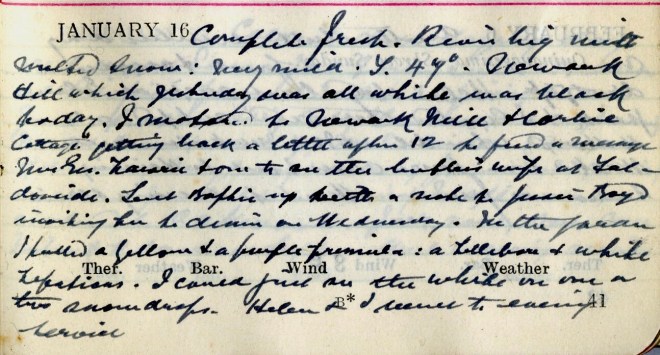 JANUARY 16 Complete fresh. River big with
melted snow: very mild. T. 47°. Newark
Hill which yesterday was all white was black
today. I motored to Newark Mill &
Cottage getting back a little after 12 to find a message
Mrs to see the wife at
. Sent Sophie up with a note to Jessie Boyd
inviting her to dinner on Wednesday. In the garden
I pulled a yellow & a purple primula: a hellebore & white
hepaticas. I could just see the white on one or
Ther. Bar. Wind Weather
two snowdrops. Helen & I went to evening
B* 41
service